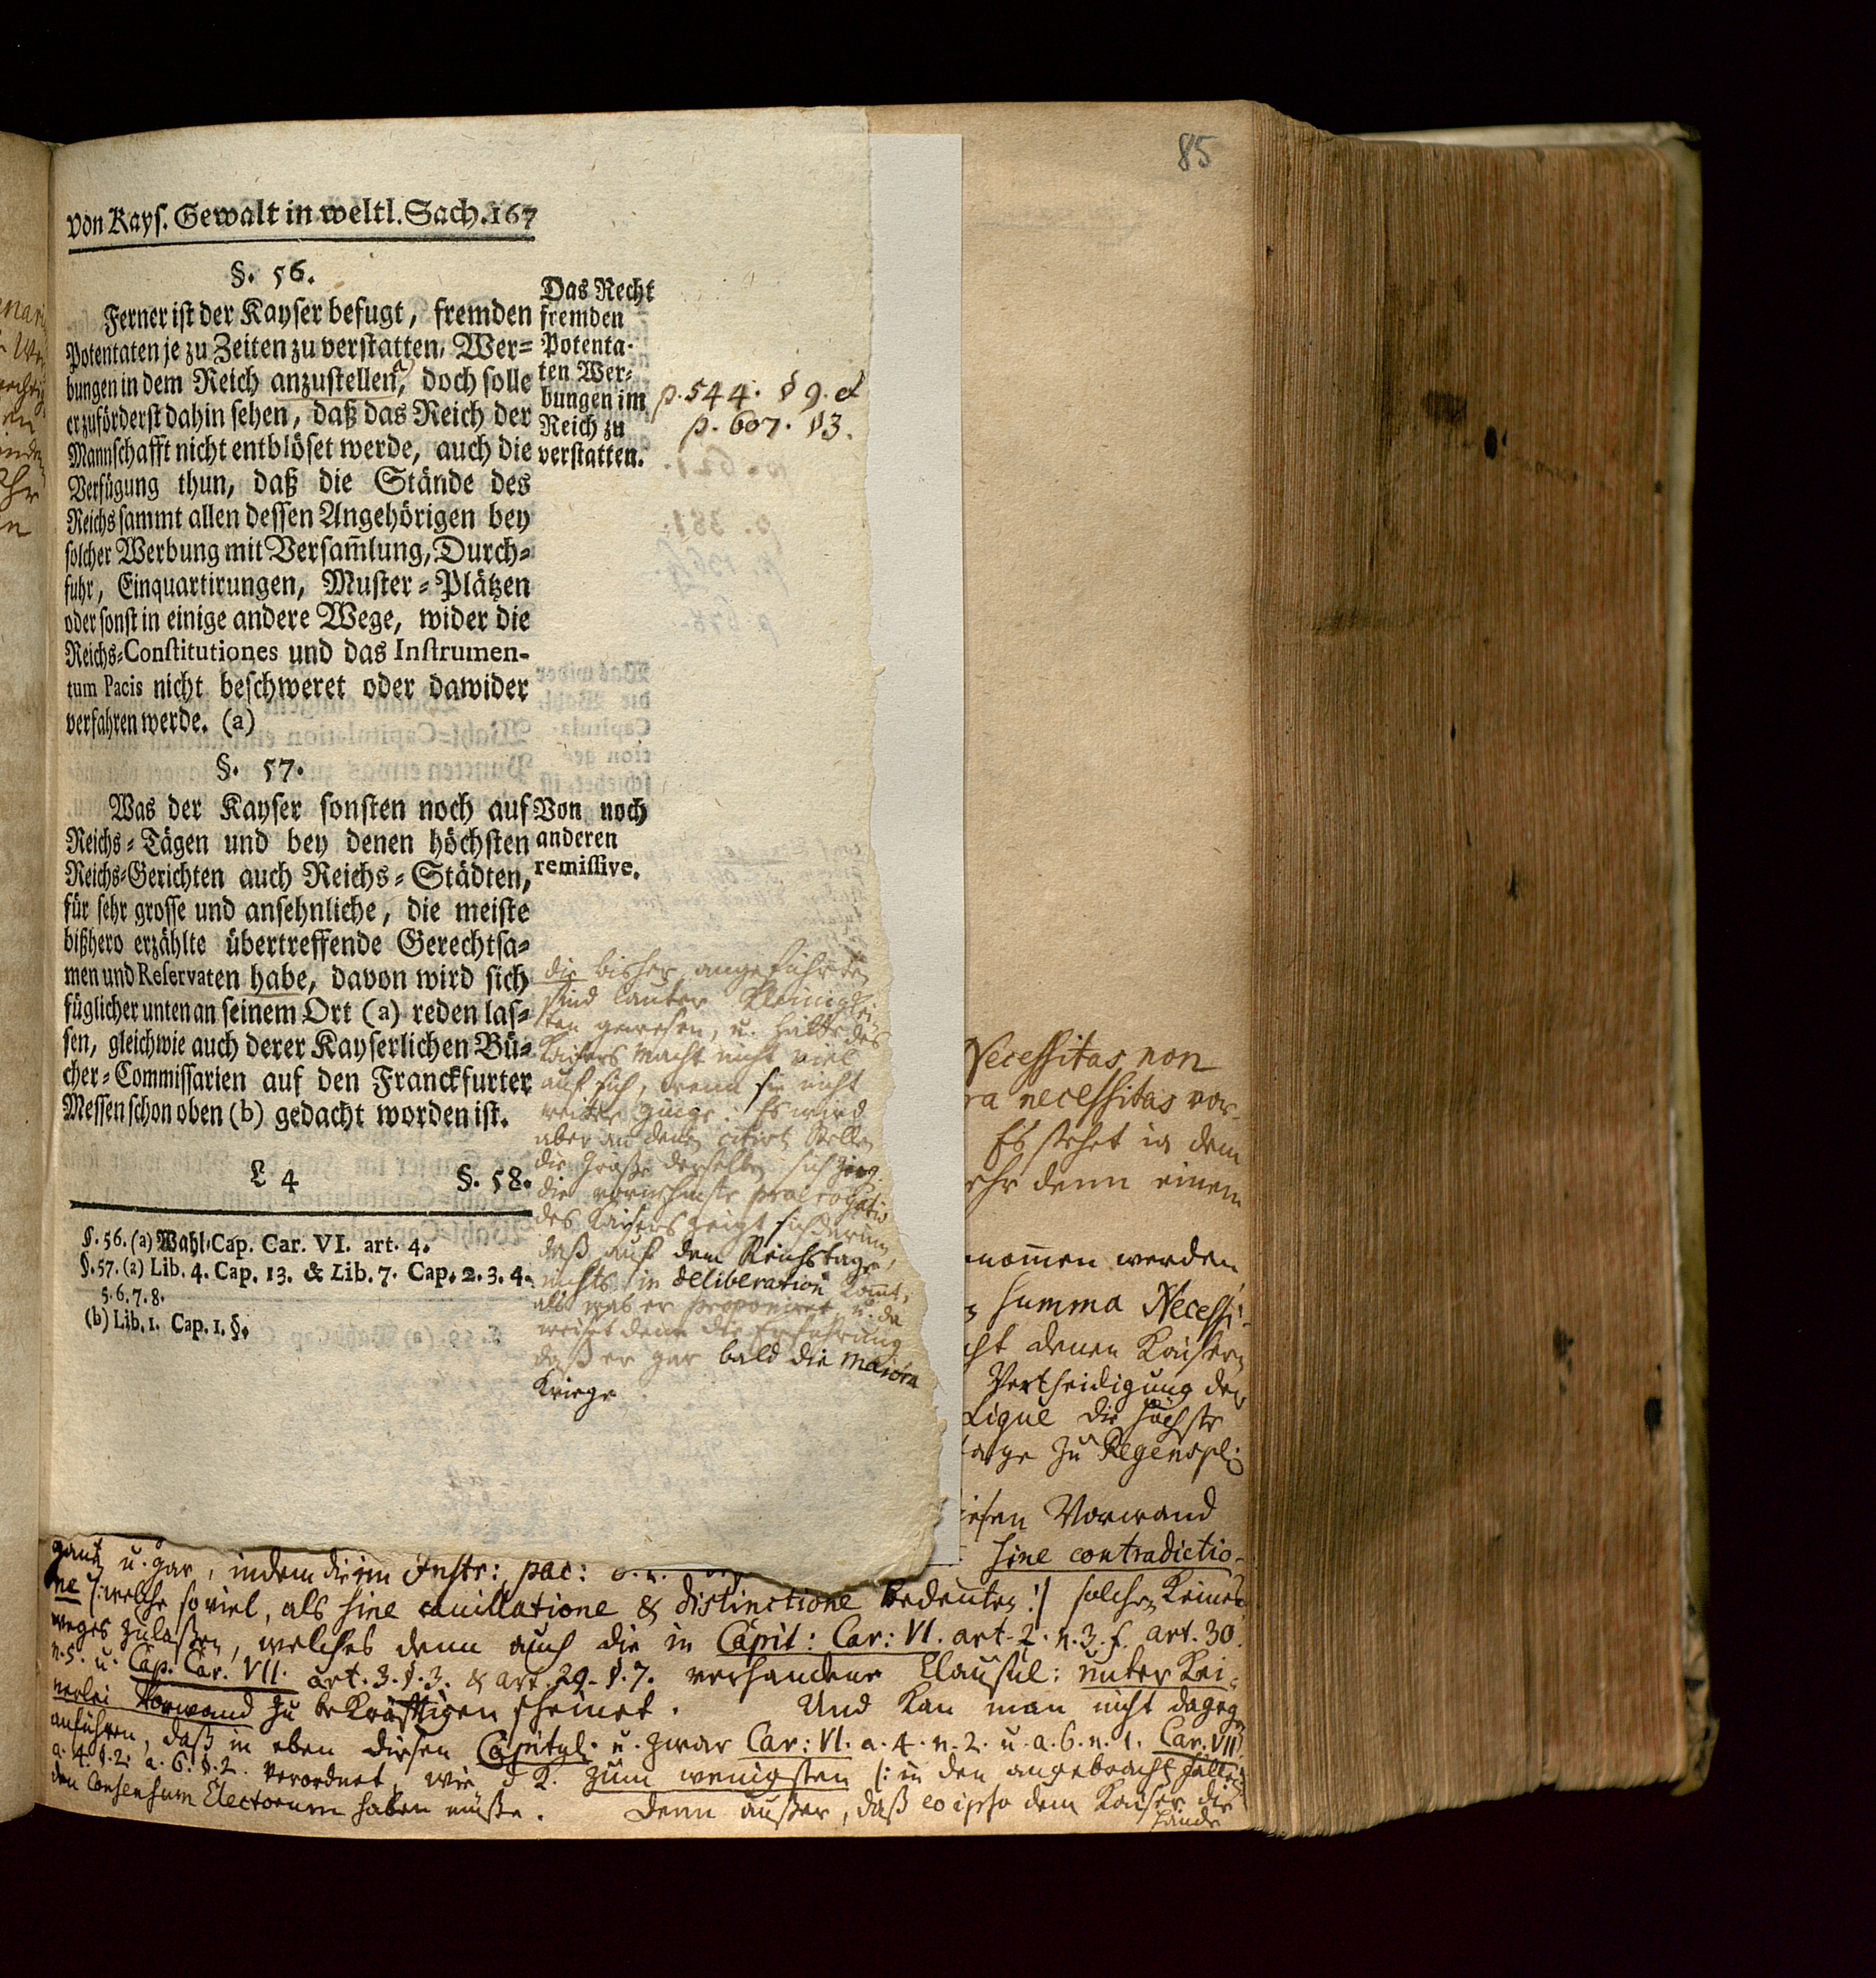 85
von Kays. Gewalt in weltl. Sach. 167
§. 56.
Ferner ist der Kayser befugt, fremden
Potentaten je zu Zeiten zu verstatten, Wer=
bungen in dem Reich anzustellen, doch solle
er zuförderst dahin sehen, daß das Reich der
Mannschafft nicht entblöset werde, auch die
Verfügung thun, daß die Stände des
Reichs sammt allen dessen Angehörigen bey
solcher Werbung mit Versam̄lung, Durch=
fuhr, Einquartirungen, Muster=Plätzen
oder sonst in einige andere Wege, wider die
Reichs=Constitutiones und das Instrumen-
tum Pacis nicht beschweret oder dawider
verfahren werde. (a)
Das Recht
fremden
Potenta-
ten Wer-
bungen im
Reich zu
verstatten.
p. 544. § 9. et
p. 607. §3.
§. 57.
Was der Kayser sonsten noch auf
Reichs=Tägen und bey denen höchsten
Reichs=Gerichten auch Reichs=Städten,
für sehr grosse und ansehnliche, die meiste
bißhero erzählte übertreffende Gerechtsa=
men und Reservaten habe, davon wird sich
füglicher unten an seinem Ort (a) reden las=
sen, gleichwie auch derer Kayserlichen Bü=
cher=Commissarien auf den Franckfurter
Messen schon oben (b) gedacht worden ist.
Von noch
anderen
remissive.
L 4 §. 58.
§. 56. (a) Wahl-Cap. Car. VI. art. 4.
§. 57. (a) Lib. 4. Cap. 13. & Lib. 7. Cap. 2. 3. 4.
5. 6. 7. 8.
(b) Lib. 1. Cap. 1. §.
die bisher angeführten
sind lauter Kleinigkei
ten gewesen, u. hätte des
Kaisers Macht nicht viel
auf sich, wenn sie nicht
weiter ginge. Es wird
aber an den citirt Stellen
die Größe derselben sich
die vornehmste praerogativ
des Kaisers zeigt sich darinn,
daß auf dem Reichstage,
nichts in deliberation komt,
als was er proponiret, u. da
weist denn die Erfahrung
daß er gar bald die maiora
Kriege
Necessitas non
necessitas vor-
Es stehet in dem
denn einem
nom̄en werden
summa Necessi-
denen Kaisern
Vertheidigung der
Ligue die höchste
zu Regenspl
Vorwand
sine contradictio-
gantz u. gar, indem die im Instr: pac:
ne (: welche so viel, als sine cauillatione & distinctione bedeuten :) solches keines
weges zulaßen, welches denn auch die in Capit: Car: VI. art. 2. n. 3. f. art. 30.
n. 5. u. Cap. Car. VII. art. 3. §. 3. & art. 29. §. 7. verhandene Clausul: unter kei-
nerlei Vorwand zu bekräfftigen scheinet. Und kan man nicht dagegen
anführen, daß in eben diesen Capitul. u. zwar Car: VI. a. 4. n. 2. u. a. 6. n. 1. Car. VII.
a. 4. §. 2. a. 6. §. 2. verordnet, wie d K. zum wenigsten (: in den angebracht fällen
den Consensum Electorum haben müße. Denn außer, daß eo ipso dem Kaiser die
Hände